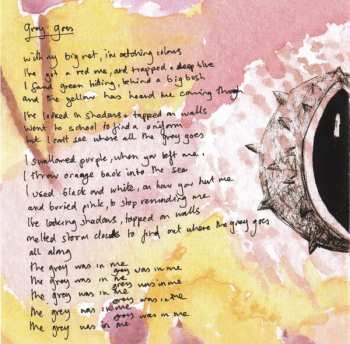 Grey Goes
with my big net, i'm catching colours
I've got a red one, and trapped a deep blue
I found green hiding, behind a big bush
and the yellow has heard me coming through
I've looked in shadows & tapped on walls
Went to school to find a uniform
but I can't see where all the grey goes
I swallowed purple, when you left me.
I threw orange back into the sea
I used black and white, on how you hurt me
and buried pink, to stop reminding me
I've looking shadows, tapped on walls
melted storm clouds to find out where the grey goes
all along
the grey was in me
grey was in me
the grey was in me
grey was in me
the grey was in me
grey was in me
the grey was in me
grey was in me
the grey was in me